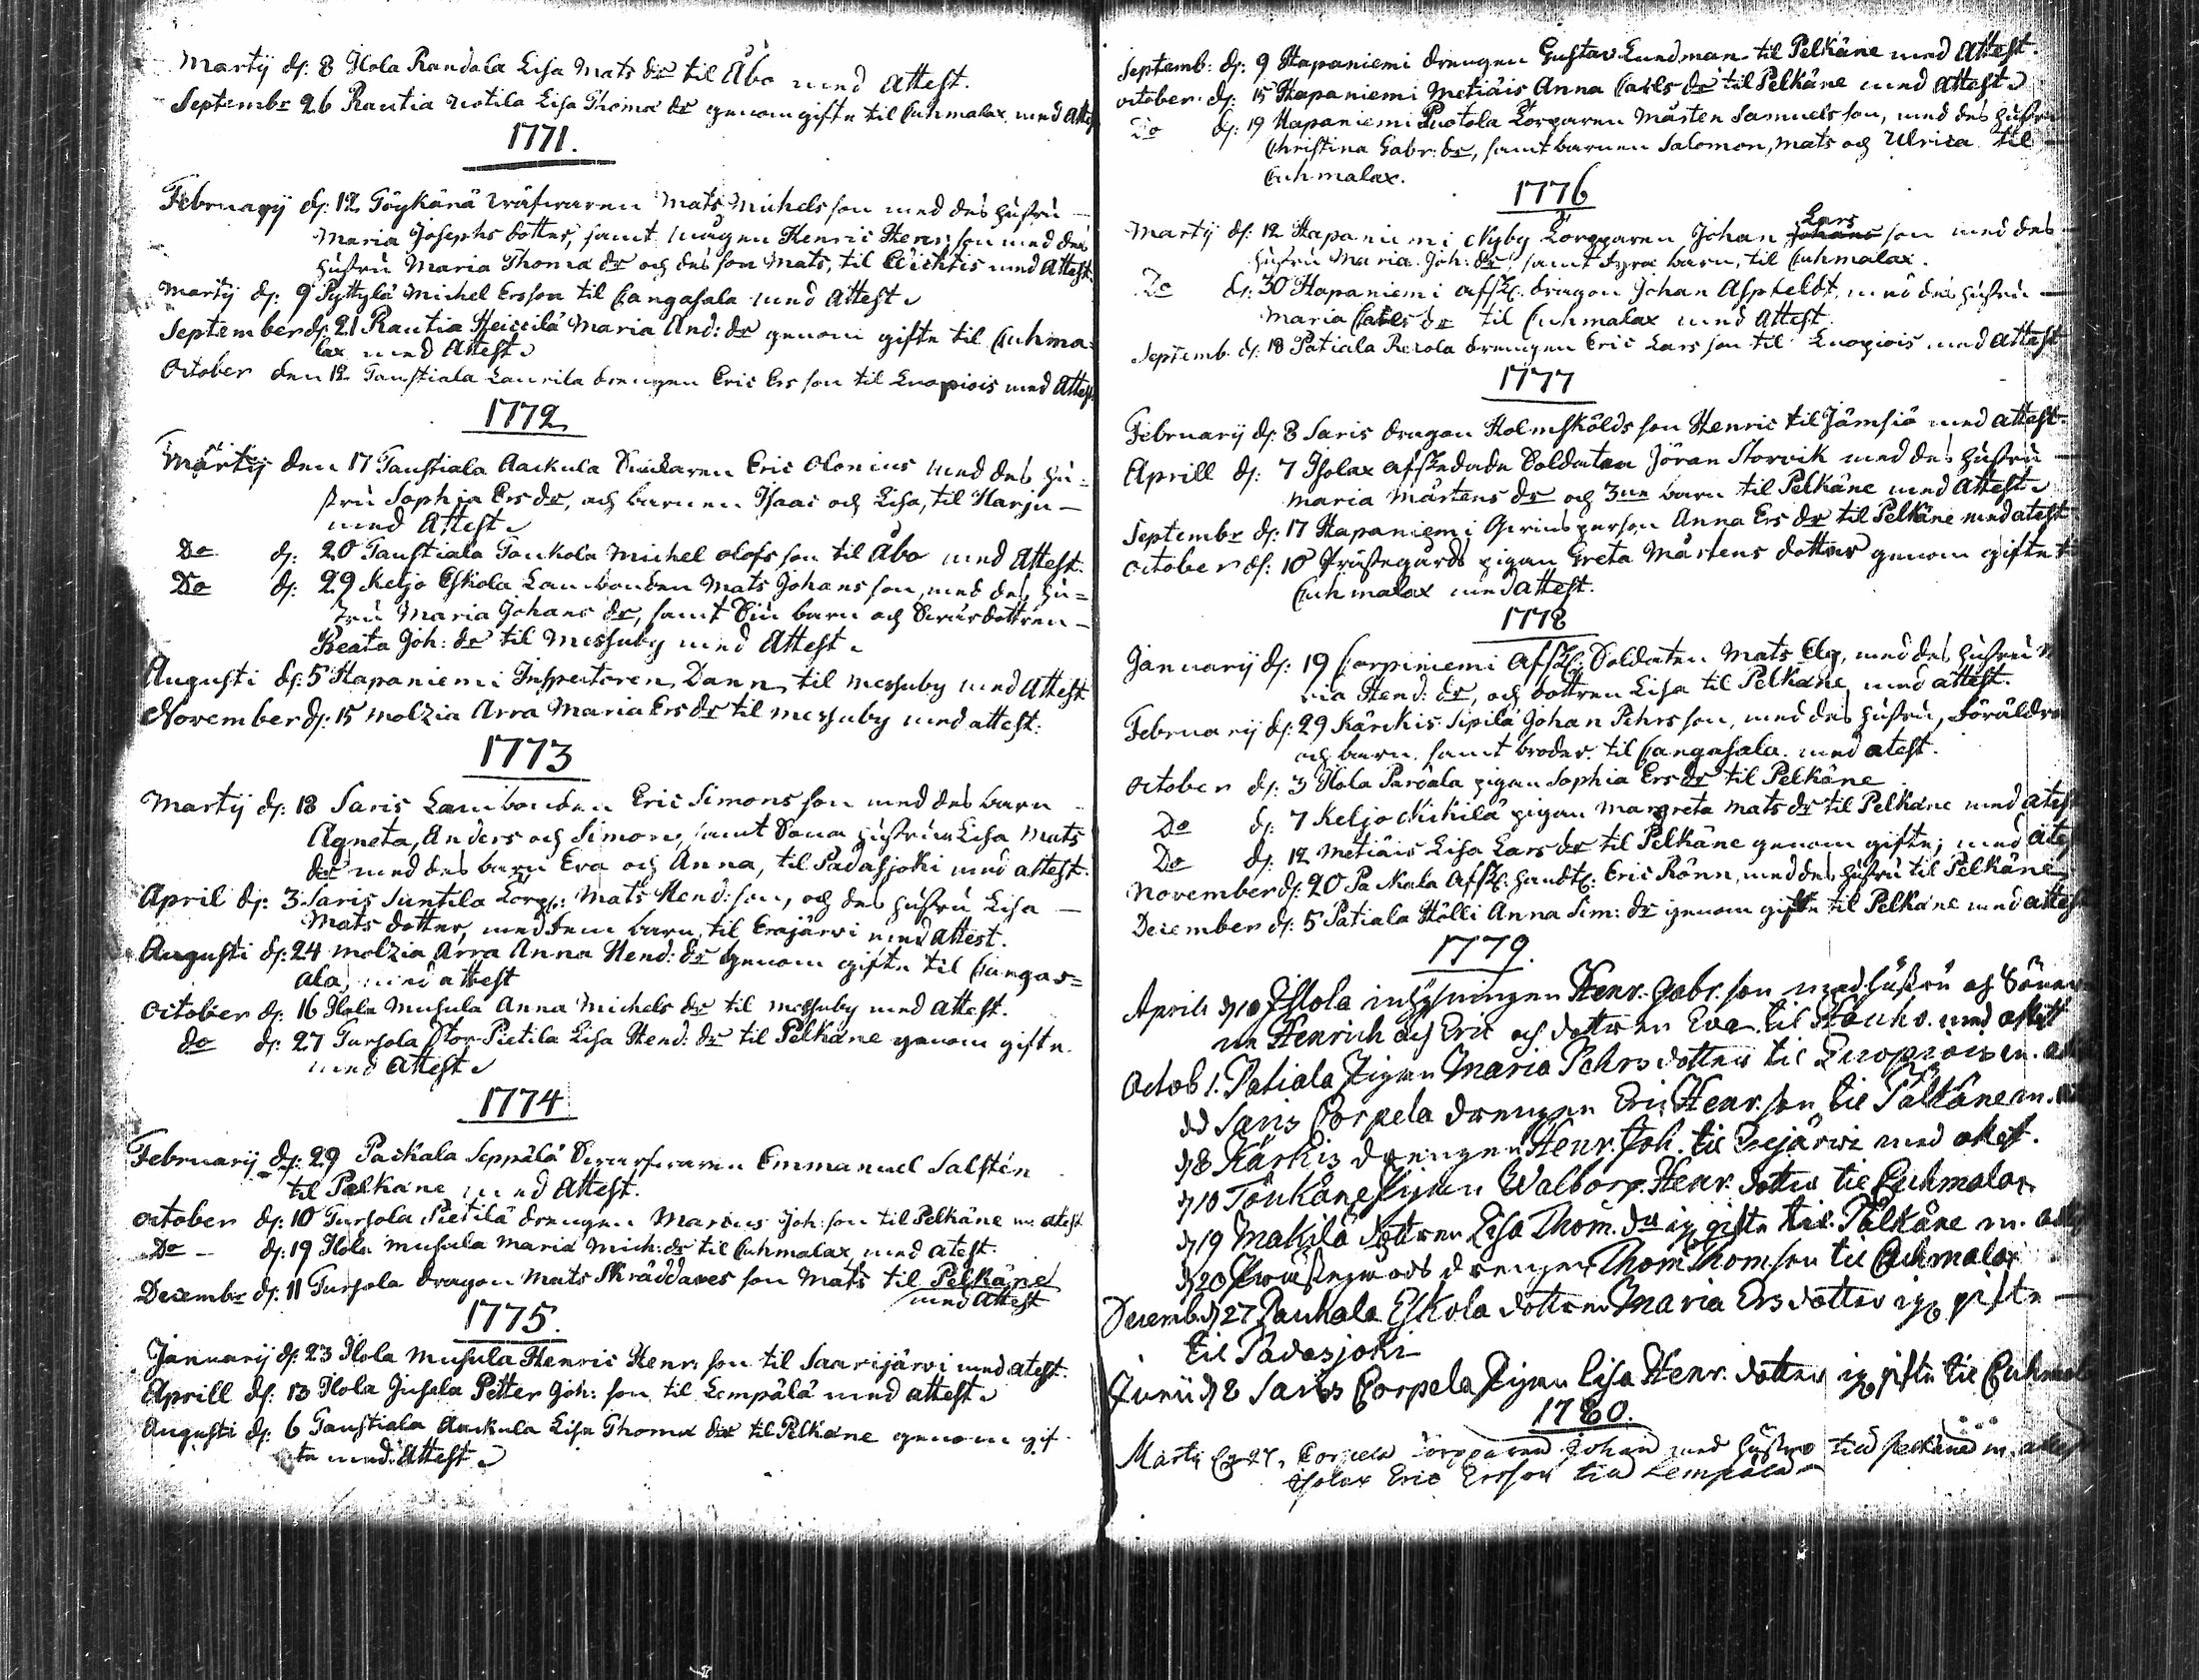 Martij d: 8 Ilola Randala Lisa Mats dr til Åbo med Attest.
Septembr 26 Rautia Uotila Lisa Thoma dr genom gifte til Cuhmalax med Attest
1771.
Februarij d: 12 Töykänä Mats Michels son med des hustru
Maria Josephs dotter, samt mågen Henric Henr: son med des
hustru Maria Thoma dr och des son Mats, til Wichtis med Attest
Martij d: 9 Pyttylä Michel Ersson til Cangasala med Attest
September d: 21 Rautia Heiccilä Maria And: dr genom gifte til Cuhma-
lax med Attest
October den 12 Taustiala Laurila drengen Eric Ers son til Luopiois med Attest
1772
Martij den 17 Taustiala Aackula Eric Olonius med des hu-
stru Sophia Ers dr, och barnen Isaac och Lisa, til Harju
med Attest
Do d: 20 Taustiala Toukola Michel Olofs son til Åbo med Attest.
Do d: 29 Keljo Eskola Lambonden Mats Johans son, med des hu-
stru Maria Johans dr, samt Siu barn och Svärdottren
Beata Joh: dr til Messuby med Attest
Augusti d: 5 Hapaniemi Inspectoren Dann til Messuby med Attest
November d: 15 Molzia Arra Maria Ers dr til Messuby med attest.
1773
Martij d: 18 Saris Lambonden Eric Simons son med des barn
Agneta, Anders och Simon, samt Sona hustrun Lisa Mats
dr med des barn Eva och Anna, til Padasjoki med attest.
April d: 3 Saris Suntila Torp: Mats Hend: son, och des hustru Lisa
Mats dotter, med fem barn, til Eräjärvi med Attest.
Augusti d: 24 Molzia Arra Anna Hend: dr genom gifte til Cangas-
ala, med attest
October d: 16 Ilola Musula Anna Michels dr til Messuby med attest.
do d: 27 Tursola Stor-Pietila Lisa Hend: dr til Pelkäne genom gifte
med Attest
1774
Februarij d: 29 Packala Seppälä Emmanuel Salstén
til Pelkäne med Attest.
October d: 10 Tursola Pietilä drengen Marcus Joh: son til Pelkäne m: atest
Do d: 19 Ilola Musula Maria Mich: dr til Cuhmalax med atest.
Decembr d: 11 Tursola dragon Mats Skräddares son Mats til Pelkäne
med Attest
1775.
Januarij d: 23 Ilola Musula Henric Henr: son til Saarijärvi med atest.
Aprill d: 13 Ilola Jusala Petter Joh: son til Lempälä med attest
Augusti d: 6 Taustiala Aackula Lisa Thoma dr til Pelkäne genom gif-
te med Attest
Septemb: d: 9 Hapaniemi drengen Gustav Lundman til Pelkäne med Attest.
October d: 15 Hapaniemi Metiäis Anna Carls dr til Pelkäne med Attest
Do d: 19 Hapaniemi Puotola Torparen Mårten Samuels son, med des hustru
Christina Gabr: dr, samt barnen Salomon, Mats och Ulrica til
Cuhmalax.
1776
Martij d: 12 Hapaniemi Nyby Torpparen Johan Lars Johans son med des
hustru Maria Joh: dr, samt fyra barn, til Cuhmalax.
Do d: 30 Hapaniemi afsk: dragon Johan Aspfeldt, med des hustru
Maria Carls dr til Cuhmalax med Attest.
Septemb d: 18 Patiala Recola drengen Eric Lars son til Luopiois med attest
1777
Februarij d: 8 Saris dragon Holmskölds son Henric til Jämsiö med attest.
Aprill d: 7 Isolax afskedade Soldaten Jöran Storvik med des hustru
Maria Mårtens dr och 3ne barn til Pelkäne med Attest
Septembr d: 17 Hapaniemi Anna Ers dr til Pelkäne med atest
October d: 10 Prästegårds pigan Greta Mårtens dotter genom gifte t
Cuhmalax med Attest.
1778
Januarij d: 19 Corpiniemi Afsk: Soldaten Mats Elg, med des hustru M
ria Hend: dr, och dottren Lisa til Pelkäne, med attest.
Februarij d: 29 Kärckis Sipilä Johan Pehrs son, med des hustru, föräldra
och barn, samt broder, til Cangasala med atest.
October d: 3 Ilola Parcala pigan Sophia Ers dr til Pelkäne
Do d: 7 Keljo Nickilä pigan Margreta Mats dr til Pelkäne med atest
Do d: 12 Metiäis Lisa Lars dr til Pelkäne genom gifte, med atest
November d: 20 Packala Afsk: Eric Rönn, med des hustru til Pelkäne
December d: 5 Patiala Hölli Anna Sim: dr genom gifte til Pelkäne med attest
1779.
April d 10 Ilola inhysningen Henr. Gabr. son med hustru och Söner
ne Henrich och Eric och dottren Eva til Hauho med attest
Octob 1. Patiala Pigan Maria Pehrs dotter til Luopiois m. att
dd Saris Corpela drengen Eric Henr. son til Pälkäne m.
d 8 Kärkis drengen Henr. Joh. til med attest.
d 10 Toukane Pigan Walborg Henr. dotter til Cuhmalax
d 19 Makilä dottren Lisa Thom. dr ig. gifte til Pälkäne m. att
d 20 Prästegårds drengen Thom Thomson til Cuhmalax
Decemb d 27 Pauhala Eskola dottren Maria Ers dotter ig. gifte
til Padasjoki
Junii d 2 Saris Corpela Pigan Lisa Henr. dotter ig gifte til Cuhmal
1780.
Martij 27, Corpela Torpparen Johan med hustro till Pelkäne m. attest
Isolax Eric Ersson till Lempälä